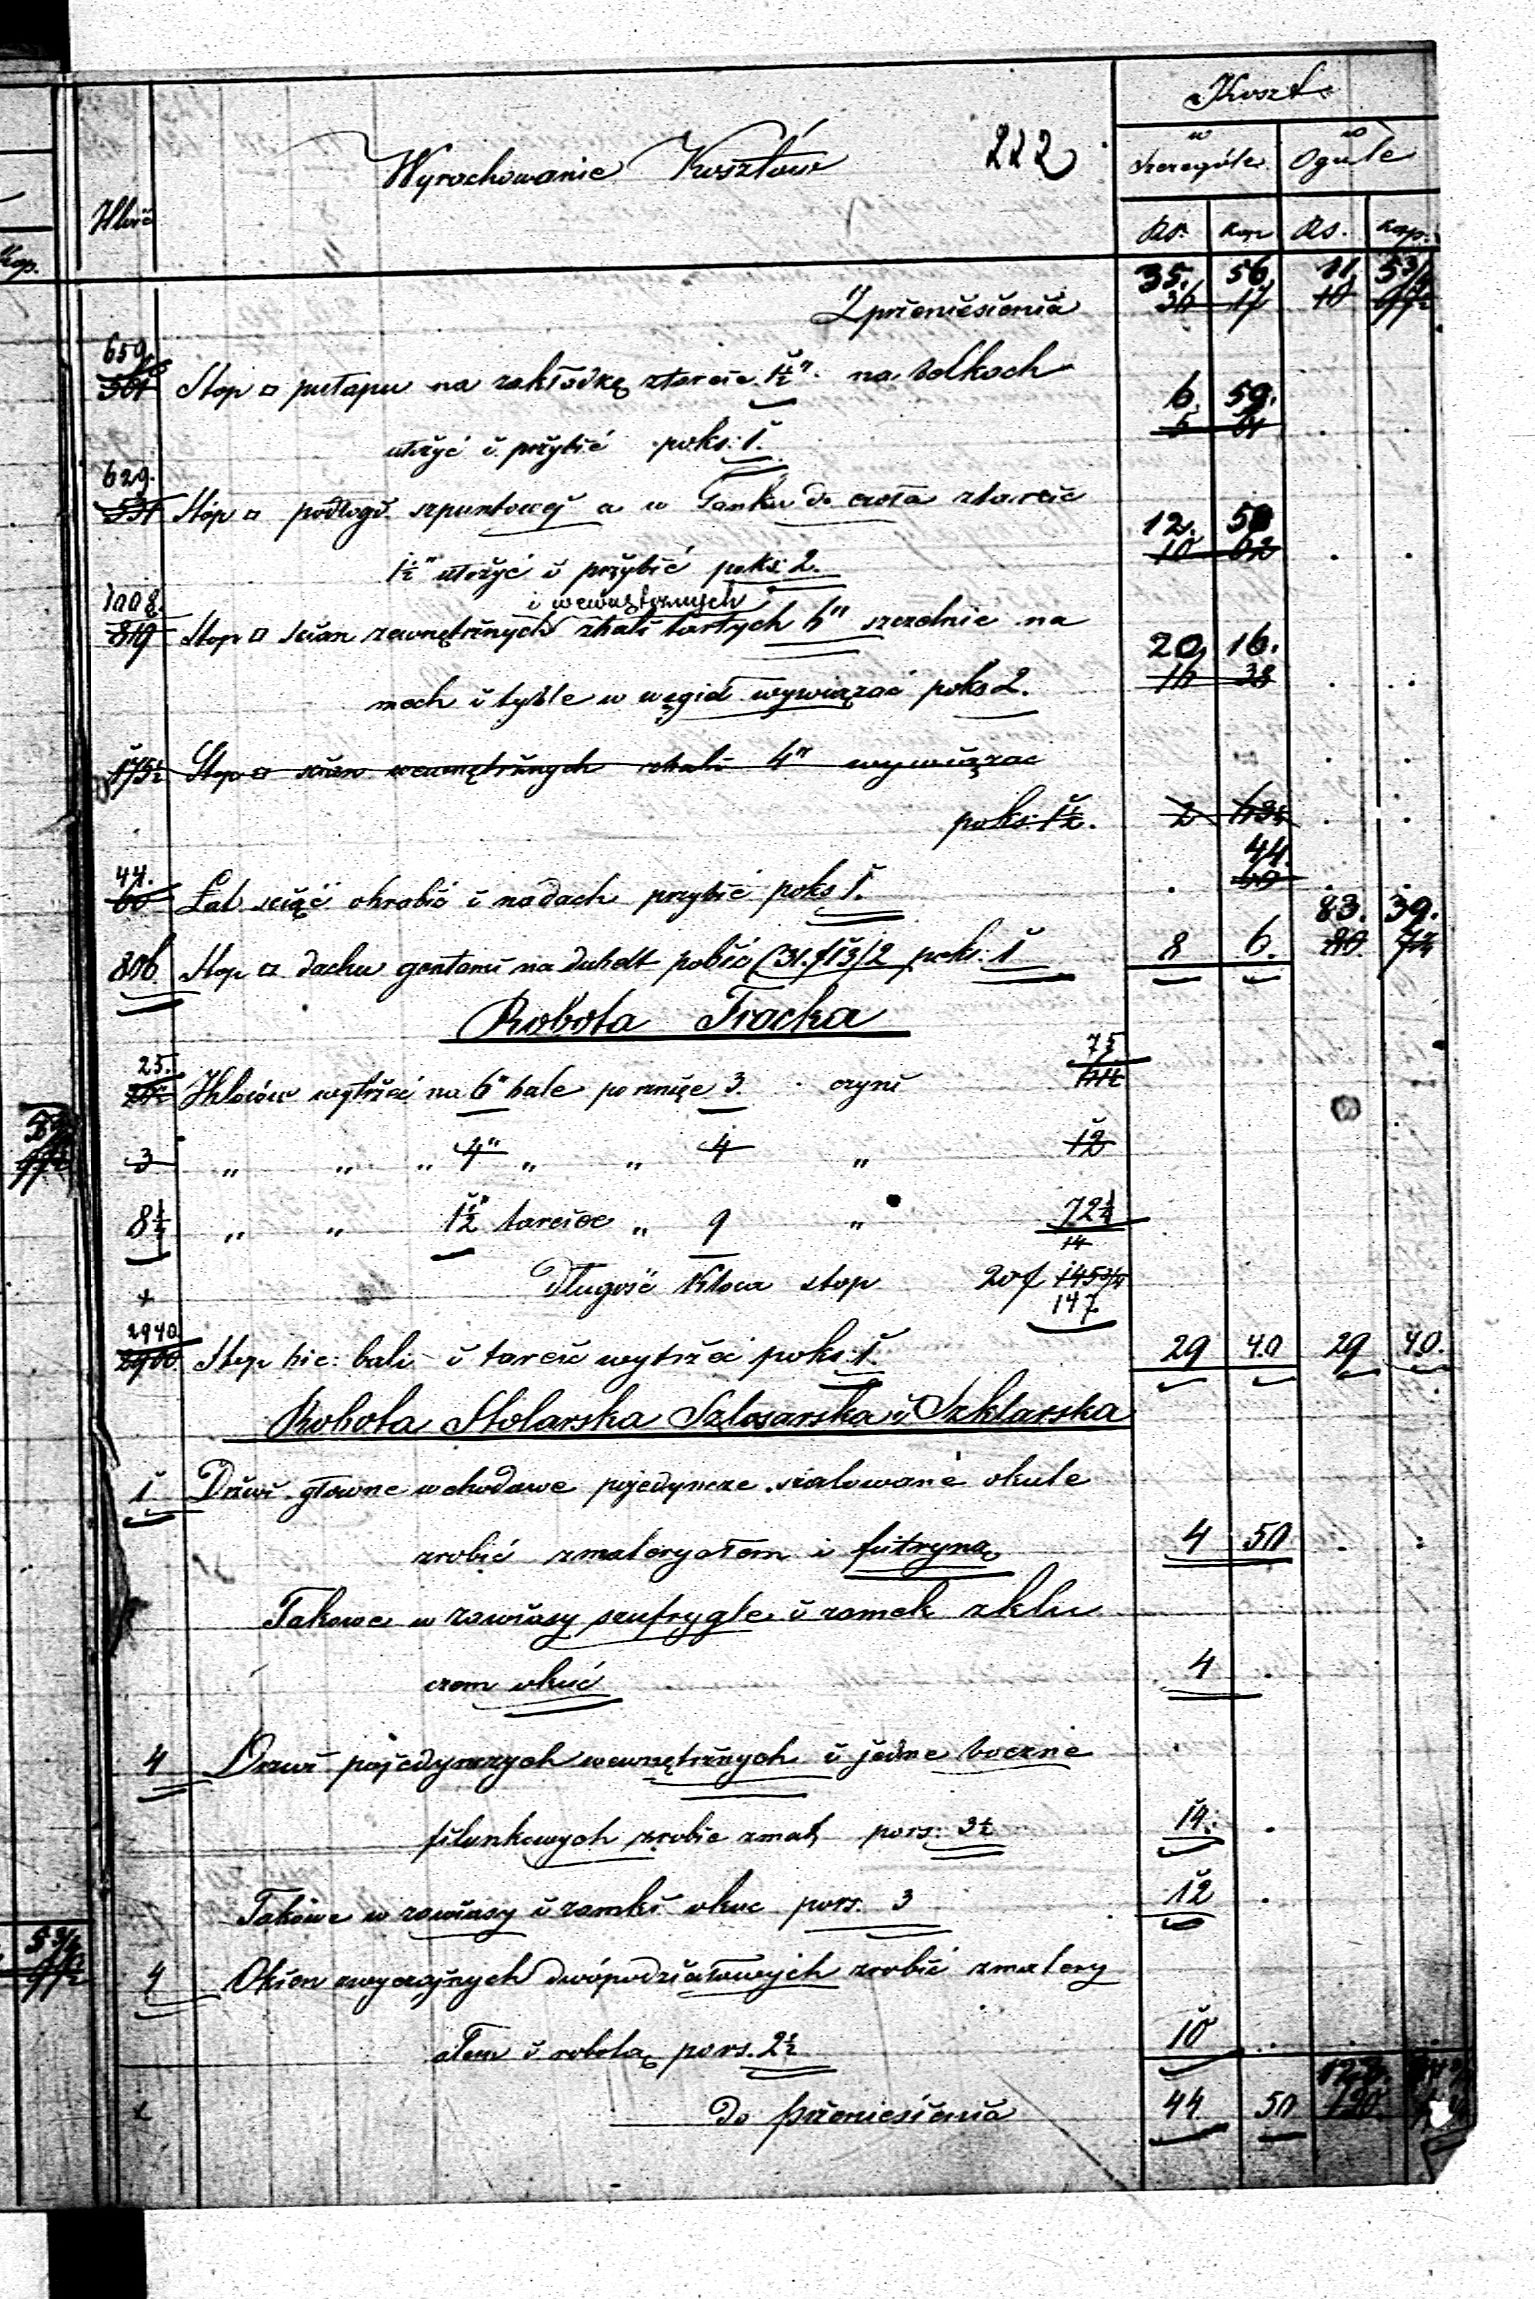 Koszt
Wyrachowanie Kosztów 222
w Szczególe w Ogule
Ilość
Rs. Kop Rs. Kop.
35. 56. 11. 53/4
Z przeniesienia 36 17 10
659.
561 Stop □ pułapu na zakładkę ztarcic 1½" na belkach
6. 59.
ułożyć i przybić po ks: 1. 5 61
629.
531 Stop □ podłogi szpuntowej a w Ganku do czoła ztarcic
12. 58
1½" ułożyć i przybić po ks: 2. 10 62
1008. i wewnętrznych
819 Stop □ ścian zewnętrznych zbali tartych 6" szczelnie na
20 16.
mech i tyble w węgieł wywiązać po ks 2. 16 38
175½ Stop □ ścian wewnętrznych zbali 4" wywiązać
po ks: 1½. 2
44. 44.
60 Łat sciąć obrobić i na dach przybić po ks 1. 60
83. 39.
806 Stop □ dachu gontami na dubelt pobić (31.f13)2 po ks: 1 8 6. 80.
Robota Tracka
25. 75
Klocow wytrzeć na 6" bale po rznięc 3. czyni
3 " " " 4" " " 4 " 12
8½ " " 1½" tarcice " 9 " 72¼
Długość Kloca stop 20f 145¾
147
2940
Stop bie: bali i tarcic wytrzeć po ks: 1. 29 40 29 40.
Robota Stolarska Szlosarska i Szklarska
1 Drzwi główne wchodowe pojedyncze szalowane okute
zrobić zmateryałem i futryną 4 50
Takowe w zawiasy szufrygle i zamek zklu
czem okuć 4
4 Drzwi pojedynczych wewnętrznych i jedne boczne
filunkowych zrobić zmat po rs: 3½ 14.
Takowe w zawiasy i zamki okuc po rs. 3 12
4 Okien zwyczajnych dwópodziałowych zrobić zmatery
ałem i robotą po rs. 2½ 10
Do przeniesienia 44 50 120.